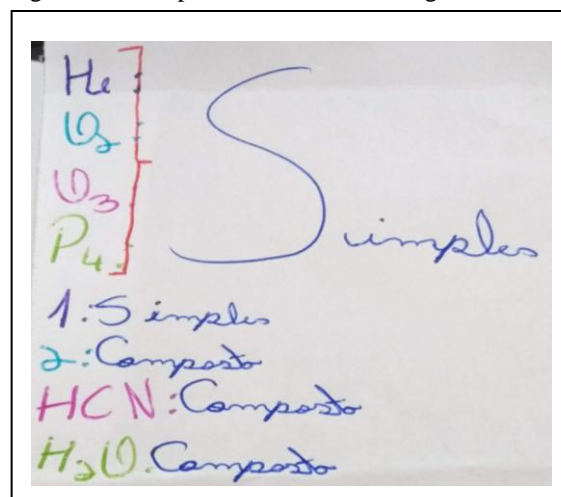 He
O2
O3
P4
Simples
1: Simples
2: Composto
HCN: Composto
H2O. Composto